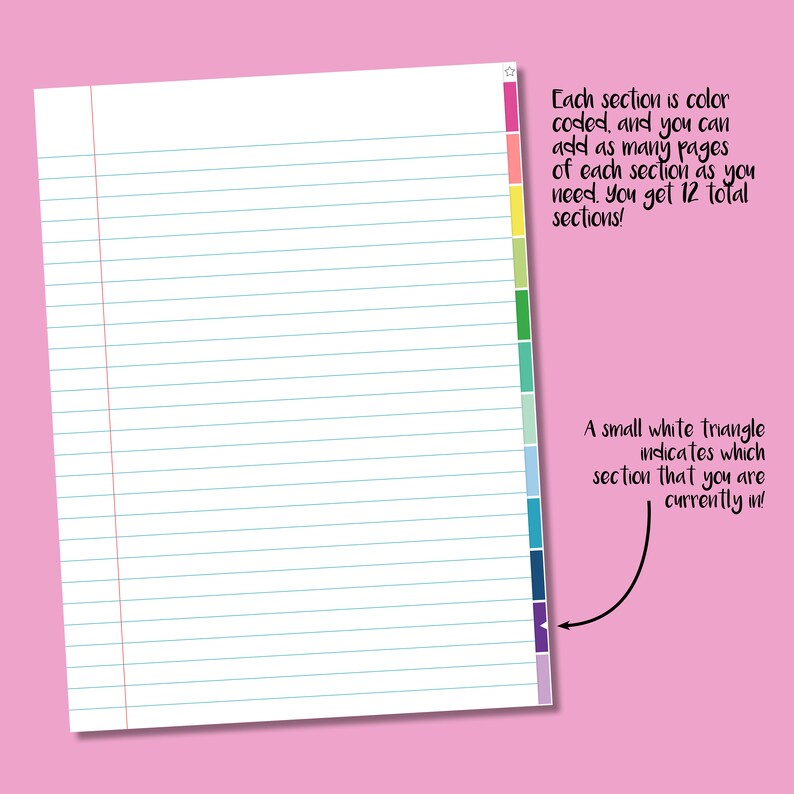 Each section is color
coded, and you can
add as many pages
of each section as you
need. You get 12 total
sections!
A small white triangle
indicates which
section that you are
currently in!